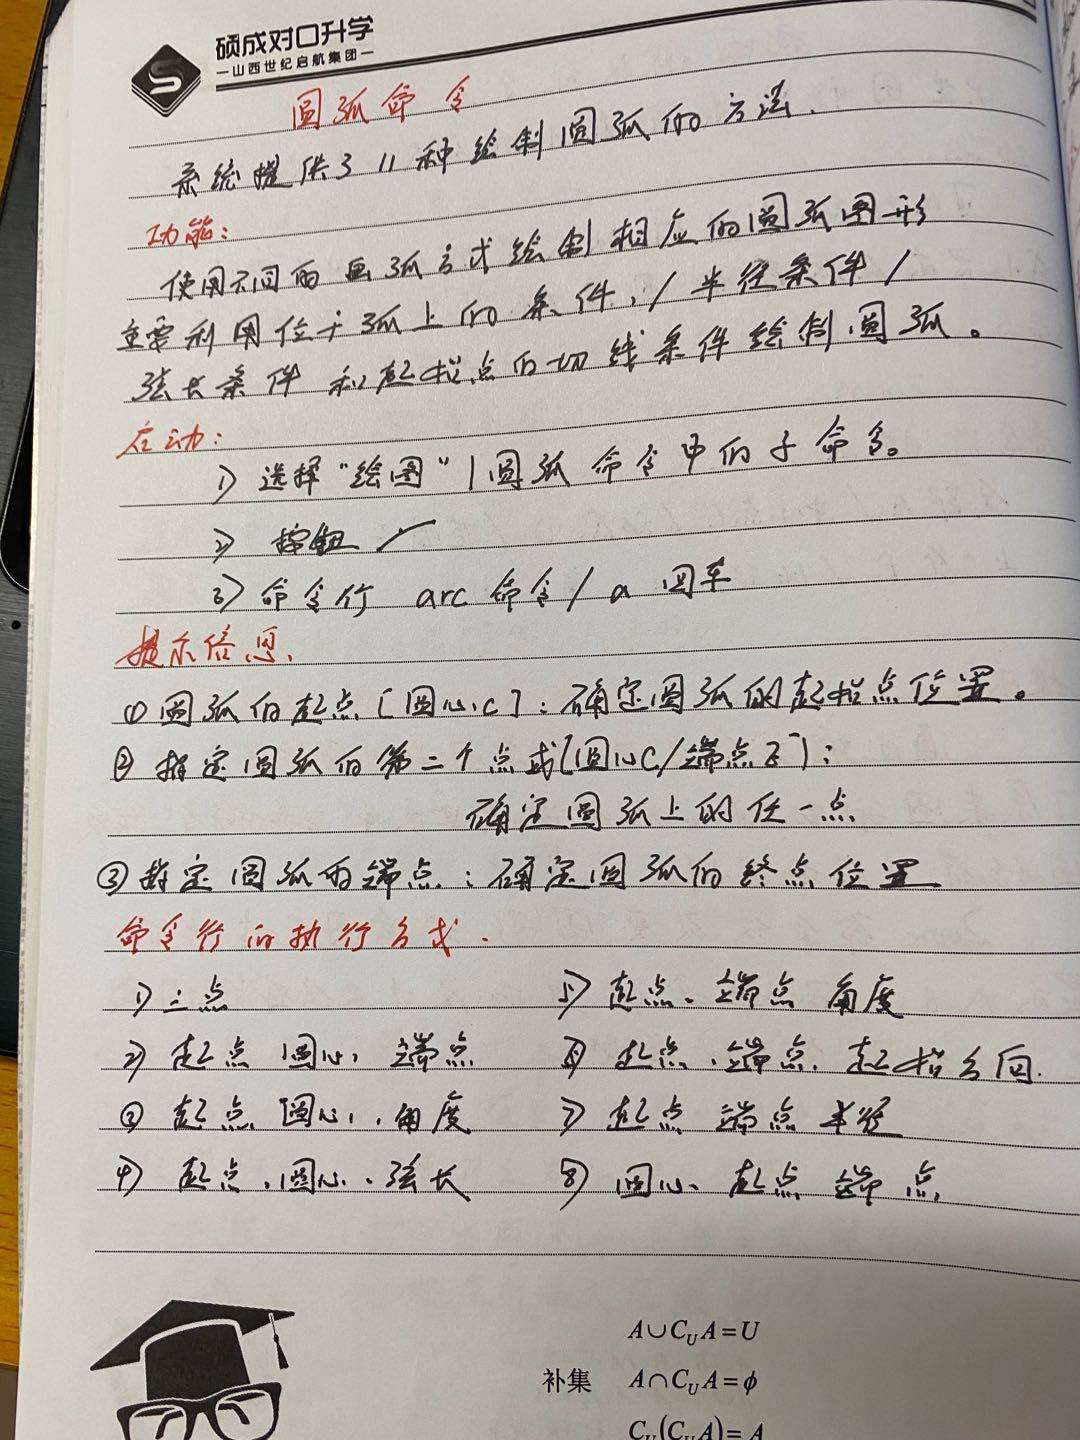 硕成对口升学
—山西世纪启航集团—
圆弧命令
系统提供了11种绘制圆弧的方法.
功能:
使用不同的画弧方式绘制相应的圆弧图形
主要利用位于弧上的条件,/半径条件/
弦长条件和起始点的切线条件绘制圆弧。
启动:
1) 选择“绘图”|圆弧命令中的子命令。
2) 按钮
3) 命令行 arc 命令/a 回车
提示信息.
① 圆弧的起点[圆心C]:确定圆弧的起始点位置。
② 指定圆弧的第二个点或[圆心C/端点E]:
确定圆弧上的任一点
③ 指定圆弧的端点:确定圆弧的终点位置
命令行的执行方式.
1) 三点 5) 起点、端点 角度
2) 起点 圆心, 端点 6) 起点、端点, 起始方向.
③ 起点, 圆心, 角度 7) 起点 端点 半径
4) 起点、圆心、弦长 8) 圆心、起点 端点
A∪C_UA=U
补集 A∩C_UA=ϕ
C_U(C_UA)=A